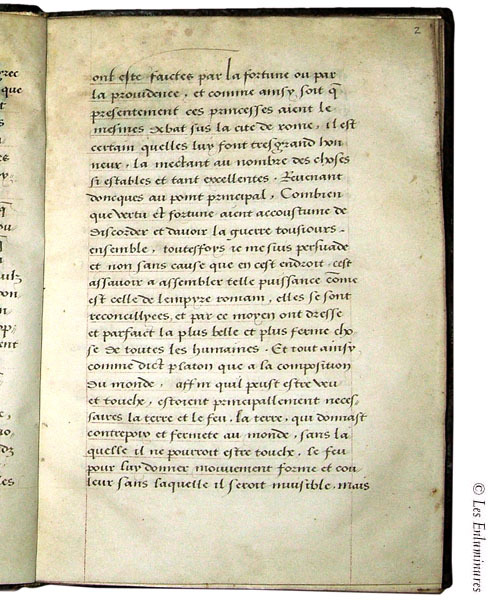 2
ont este faictes par la fortune ou par
la prouidence, et comme ainsy soit q̃
presentement ces princesses aient le
mesmes debat sus la cite de rome, il est
certain quelles luy font tresgrand hon
neur, la mectant au nombre des choses
si estables et tant excellentes. Reuenant
doncques au point principal, Combien
que vertu et fortune aient accoustume de
discorder et dauoir la guerre tousiours
ensemble, toutesfoys ie me suis persuade
et non sans cause que en cest endroit, cest
assauoir a assembler telle puissance cõme
est celle de lempyre romain, elles se sont
reconcillyees, et par ce moyen ont dresse
et parfaict la plus belle et plus ferme cho
se de toutes les humaines. Et tout ainsy
comme dict platon que a la composition
du monde, affin quil peust estre veu
et touche, estoient principallement neces
saires la terre et le feu, la terre, qui donnast
contrepoix et fermete au monde, sans la
quelle il ne pourroit estre touche, le feu
pour luy donner mouuement forme et cou
leur sans laquelle il seroit inuisible, mais
© Les Enluminures